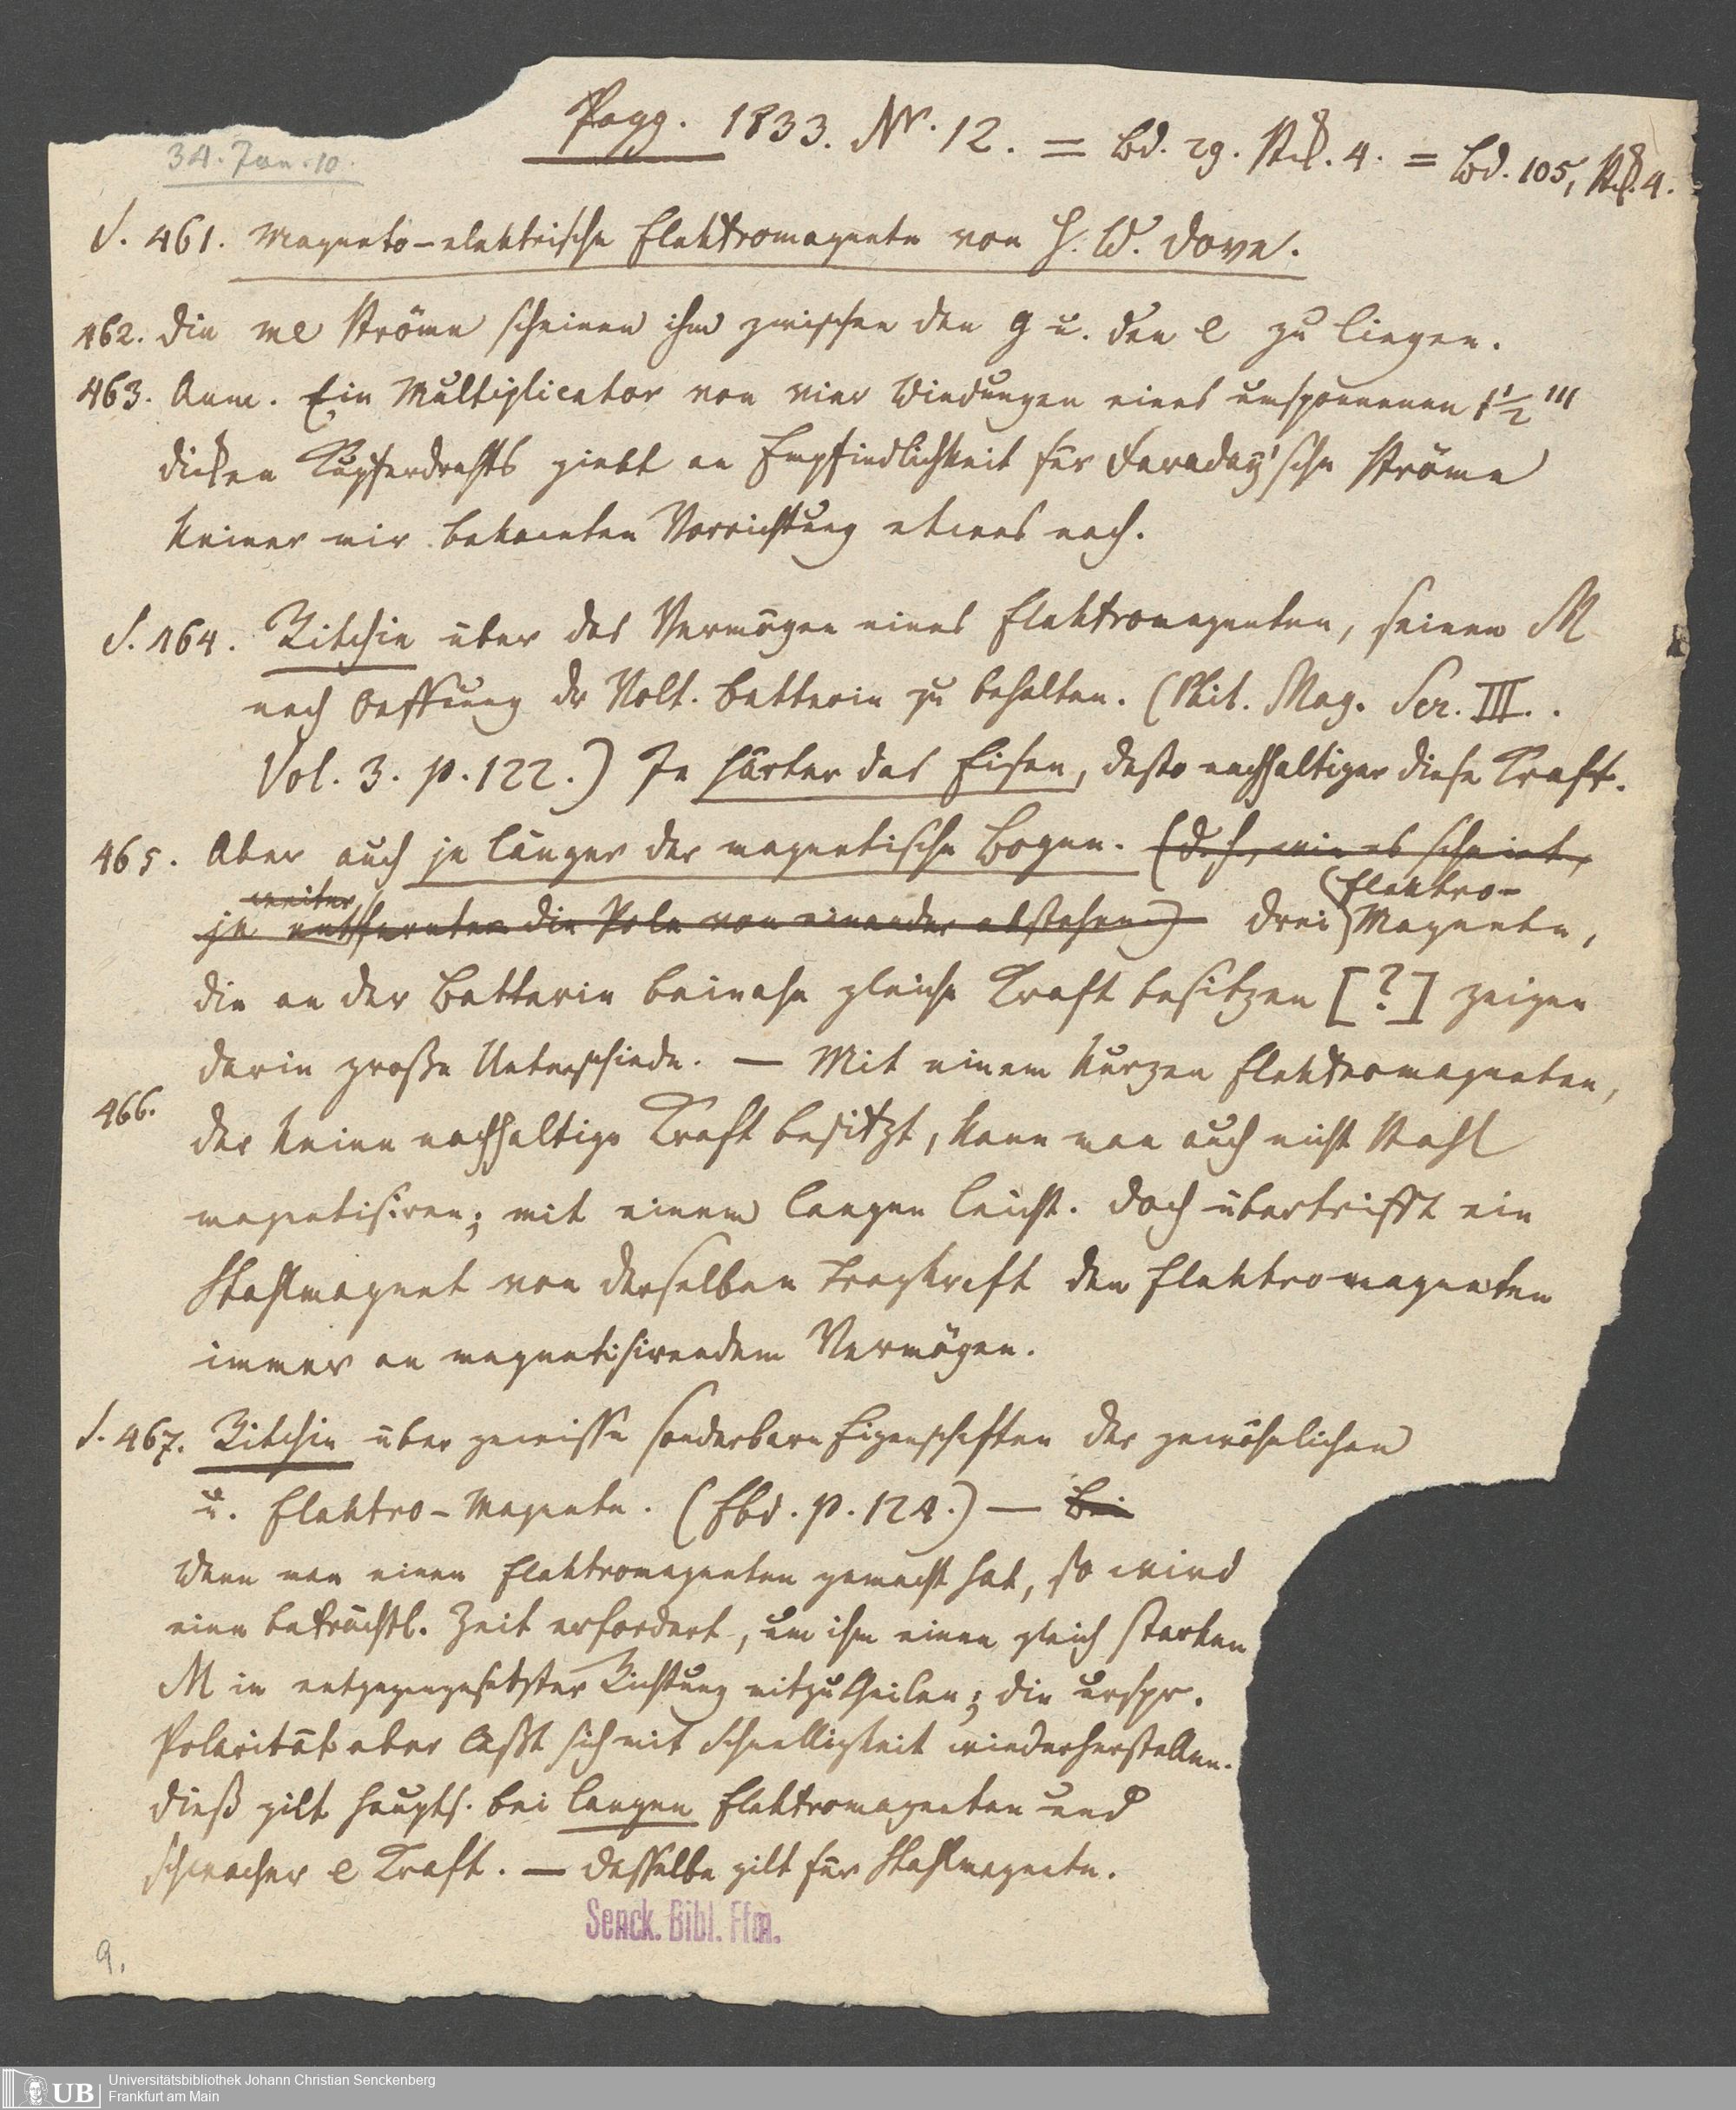 Pogg. 1833. Nr. 12. = Bd. 29. Stck. 4. = Bd. 105, Stck. 4.
34. Jan. 10.
S. 461. Magneto-elektrische Elektromagnete von H. W. Dove.
462. Die me Ströme scheinen ihm zwischen den g u. den e zu liegen.
463. Anm. Ein Multiplicator von vier Windungen eines umsponnenen 1½'''
dicken Kupferdrahts giebt an Empfindlichkeit für Faraday'sche Ströme
keiner mir bekannten Vorrichtung etwas nach.
S. 464. Ritchie über das Vermögen eines Elektromagneten, seinen M
nach Oeffnung dr Volt. Batterie zu behalten. (Phil. Mag. Ser. III.
Vol. 3. p. 122.) Je härter das Eisen, desto nachhaltiger diese Kraft.
465. Aber auch je länger der magnetische Bogen. (d. h., wie es scheint,
weiter Elektro-
je entfernter die Pole von einander abstehen) Drei Magnete,
die an der Batterie beinahe gleiche Kraft besitzen [?] zeigen
darin große Unterschiede. — Mit einem kurzen Elektromagneten,
466.
der keine nachhaltige Kraft besitzt, kann man auch nicht Stahl
magnetisiren; mit einem langen leicht. Doch übertrifft ein
Stahlmagnet von derselben Tragkraft den Elektromagneten
immer an magnetisirendem Vermögen.
S. 467. Ritchie über gewisse sonderbare Eigenschaften der gewöhnlichen
u. Elektro-Magnete. (Ebd. p. 124.) — Bei
Wenn man einen Elektromagneten gemacht hat, so wird
eine beträchtl. Zeit erfordert, um ihm einen gleich starken
M in entgegengesetzter Richtung mitzutheilen; die urspr.
Polarität aber läßt sich mit Schnelligkeit wiederherstellen.
Dieß gilt haupts. bei langen Elektromagneten und
schwacher e Kraft. — Dasselbe gilt für Stahlmagnete.
Senck. Bibl. Ffm.
9.
UB
Universitätsbibliothek Johann Christian Senckenberg
Frankfurt am Main